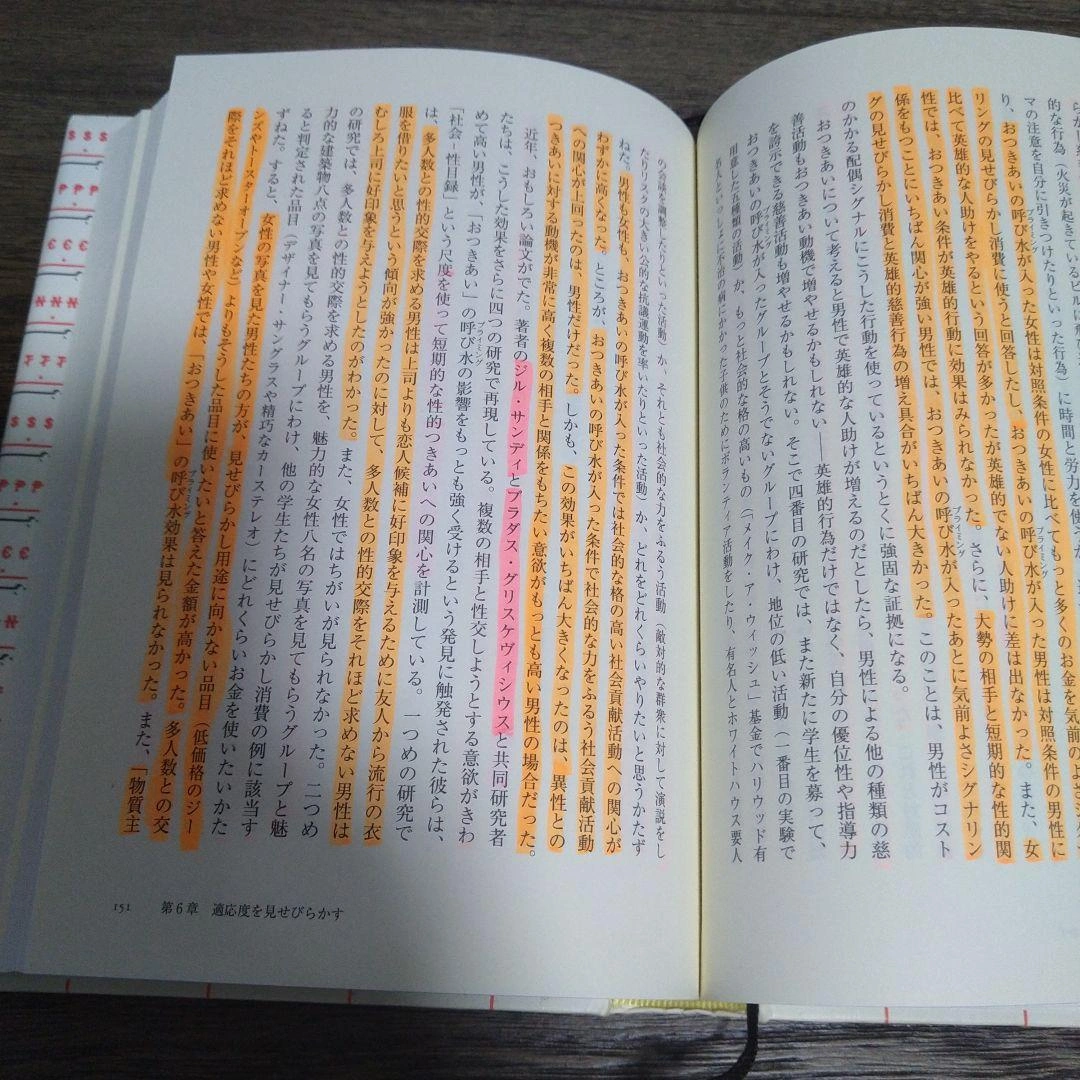 的な行為（火災が起きているビルに
マの注意を自分に引きつけたりといった行為）
り、おつきあいの呼び水が入った女性は対照条件の女性に比べてもっと多くのお金を
プライミング
リングの見せびらかし消費に使うと回答したし、おつきあいの呼び水が入った男性は対照条件の男性に
プライミング
比べて英雄的な人助けをやるという回答が多かったが英雄的でない人助けに差は出なかった。また、女
性では、おつきあい条件が英雄的行動に効果はみられなかった。さらに、大勢の相手と短期的な性的関
係をもつことにいちばん関心が強い男性では、おつきあいの呼び水が入ったあとに気前よさシグナリン
プライミング
グの見せびらかし消費と英雄的慈善行為の増え具合がいちばん大きかった。このことは、男性がコスト
のかかる配偶シグナルにこうした行動を使っているというとくに強固な証拠になる。
おつきあいについて考えると男性で英雄的な人助けが増えるのだとしたら、男性による他の種類の慈
善活動もおつきあい動機で増やせるかもしれない――英雄的行為だけではなく、自分の優位性や指導力
を誇示できる慈善活動も増やせるかもしれない。そこで四番目の研究では、また新たに学生を募って、
おつきあいの呼び水が入ったグループとそうでないグループにわけ、地位の低い活動（一番目の実験で
プライミング
用意した五種類の活動）か、もっと社会的な格の高いもの（「メイク・ア・ウィッシュ」基金でハリウッド有
名人といっしょに不治の病にかかった子供のためにボランティア活動をしたり、有名人とホワイトハウス要人
の会議を調整したりといった活動）か、それとも社会的な力をふるう活動（敵対的な群衆に対して演説をし
たりリスクの大きい公的な抗議運動を率いたりといった活動）か、どれをどれくらいやりたいと思うかたず
ねた。男性も女性も、おつきあいの呼び水が入った条件では社会的な格の高い社会貢献活動への関心が
プライミング
わずかに高くなった。ところが、おつきあいの呼び水が入った条件で社会的な力をふるう社会貢献活動
プライミング
への関心が上回ったのは、男性だけだった。しかも、この効果がいちばん大きくなったのは、異性との
つきあいに対する動機が非常に高く複数の相手と関係をもちたい意欲がもっとも高い男性の場合だった。
近年、おもしろい論文がでた。著者のジル・サンディとブラダス・グリスケヴィシウスと共同研究者
たちは、こうした効果をさらに四つの研究で再現している。複数の相手と性交しようとする意欲がきわ
めて高い男性が、「おつきあい」の呼び水の影響をもっとも強く受けるという発見に触発された彼らは、
プライミング
「社会‐性目録」という尺度を使って短期的な性的つきあいへの関心を計測している。一つめの研究で
は、多人数との性的交際を求める男性は上司よりも恋人候補に好印象を与えるために友人から流行の衣
服を借りたいと思うという傾向が強かったのに対して、多人数との性的交際をそれほど求めない男性は
むしろ上司に好印象を与えようとしたのがわかった。また、女性ではちがいが見られなかった。二つめ
の研究では、多人数との性的交際を求める男性を、魅力的な女性八名の写真を見てもらうグループと魅
力的な建築物八点の写真を見てもらうグループにわけ、他の学生たちが見せびらかし消費の例に該当す
ると判定された品目（デザイナー・サングラスや精巧なカーステレオ）にどれくらいお金を使いたいかた
ずねた。すると、女性の写真を見た男性たちの方が、見せびらかし用途に向かない品目（低価格のジー
ンズやトースターオーブンなど）よりもそうした品目に使いたいと答えた金額が高かった。多人数との交
際をそれほど求めない男性や女性では、「おつきあい」の呼び水効果は見られなかった。また、「物質主
プライミング
151 第6章 適応度を見せびらかす